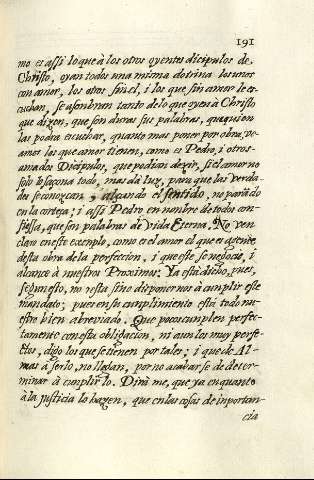 191
mo es assi lo que à los otros oyentes dicipulos de
Christo, oyan todos una misma dotrina los unos
con amor, los otros sin el, i los que sin amor le es-
cuchan, se asombran tanto de lo que oyen à Christo
que dizen, que son duras sus palabras, que quien
las podra escuchar, quanto mas poner por obra, ve-
amos los que amor tienen, como es Pedro, i otros
amados Dicipulos, que podian dezir, si el amor no
solo lo saçona todo, mas dà luz, para que las verda-
des se conozcan, alçando el sentido, no parado
en la corteza; i assi Pedro en nonbre de todos con-
fiessa, que son palabras de vida Eterna. No ven
claro en este exenplo, como es el amor el que es agente
desta obra de la perfeccion, i que este se negocia, i
alcance à nuestros Proximos. Ya està dicho, pues,
segun esto, no resta sino disponernos à cunplir este
mandado; pues en su cunplimiento està todo nu-
estro bien abreviado. Que pocos cunplen perfec-
tamente con esta obligacion, ni aun los muy perfe-
ctos, digo los que se tienen por tales; i que de Al-
mas à serlo, no llegan, por no acabarse de deter-
minar à cunplirlo. Dirà me, que ya en quanto
à la justicia lo hazen, que en las cosas de inportan-
cia